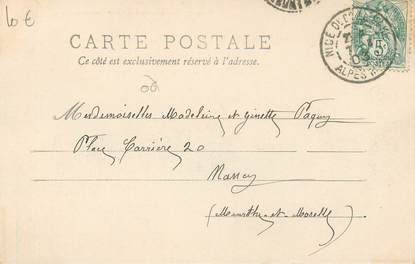 10 €
CARTE POSTALE
Ce côté est exclusivement réservé à l'adresse.
Mesdemoiselles Madeleine et Ginette Paquy
Place Carrière 20
Nancy
(Meurthe-et-Moselle)
NICE
ALPES
5